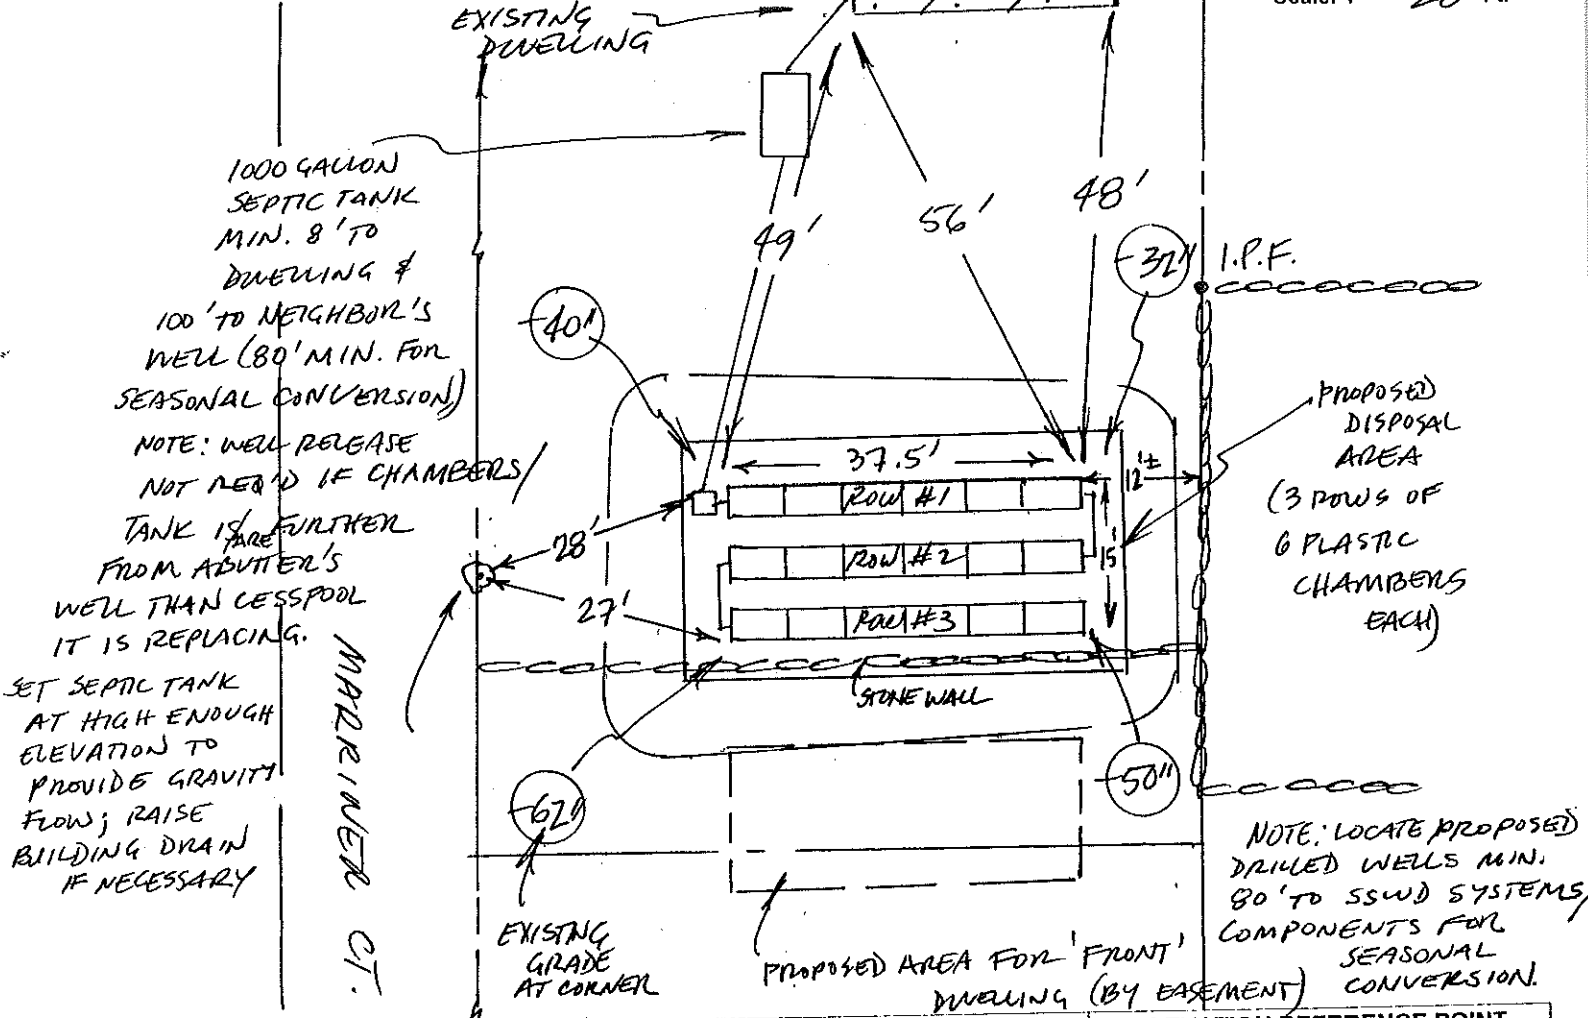 EXISTING
DWELLING
20
1000 GALLON
SEPTIC TANK
MIN. 8' TO
DWELLING &
100' TO NEIGHBOR'S
WELL (80' MIN. FOR
SEASONAL CONVERSION)
NOTE: WELL RELEASE
NOT REQ'D IF CHAMBERS/
TANK IS/ARE FURTHER
FROM ABUTTER'S
WELL THAN CESSPOOL
IT IS REPLACING.
SET SEPTIC TANK
AT HIGH ENOUGH
ELEVATION TO
PROVIDE GRAVITY
FLOW; RAISE
BUILDING DRAIN
IF NECESSARY
MARRINER CT.
49'
56'
48'
-40"
-32"
I.P.F.
37.5'
12'±
ROW #1
ROW #2
ROW #3
15'
28'
27'
STONE WALL
-62"
-50"
PROPOSED
DISPOSAL
AREA
(3 ROWS OF
6 PLASTIC
CHAMBERS
EACH)
EXISTNG
GRADE
AT CORNER
PROPOSED AREA FOR 'FRONT'
DWELLING (BY EASEMENT)
NOTE: LOCATE PROPOSED
DRILLED WELLS MIN.
80' TO SSWD SYSTEMS/
COMPONENTS FOR
SEASONAL
CONVERSION.
REFERENCE POINT